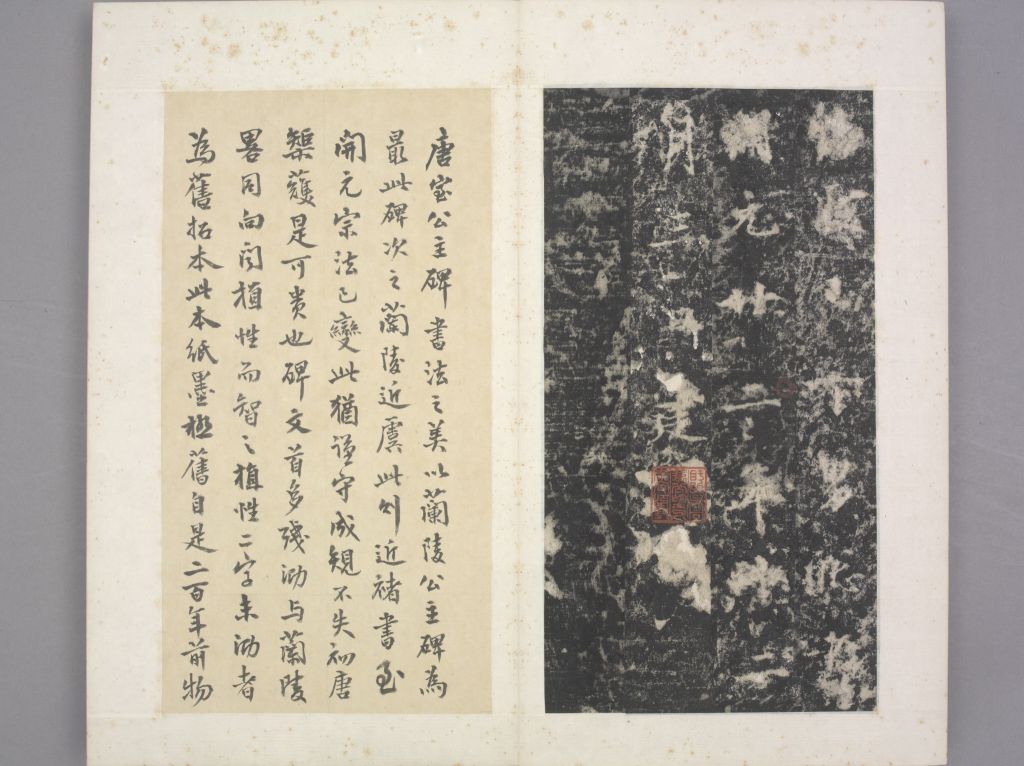 元廿二年
三日建
唐室公主碑書法之美以蘭陵公主碑為
最此碑次之蘭陵近虞此則近褚書至
開元宗法已變此猶謹守成規不失初唐
榘矱是可貴也碑文首多殘泐与蘭陵
畧同向聞植性而智之植性二字未泐者
為舊拓本此本紙墨極舊自是二百年前物